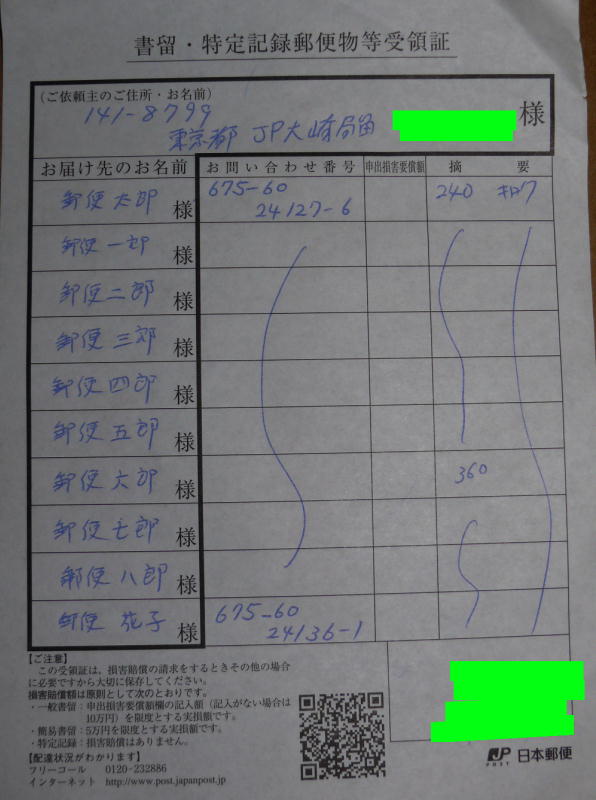 書留・特定記録郵便物等受領証
(ご依頼主のご住所・お名前)
141-8799
東京都 JP大崎局留 様
お届け先のお名前 お問い合わせ番号 申出損害要償額 摘要
郵便 太郎 様 675-60 240 キロク
24127-6
郵便 一郎 様
郵便 二郎 様
郵便 三郎 様
郵便 四郎 様
郵便 五郎 様
郵便 六郎 様 360
郵便 七郎 様
郵便 八郎 様
郵便 花子 様 675-60
24136-1
【ご注意】
この受領証は、損害賠償の請求をするときその他の場合
に必要ですから大切に保存してください。
損害賠償額は原則として次のとおりです。
・一般書留:申出損害要償額欄の記入額(記入がない場合は
10万円)を限度とする実損額です。
・簡易書留:5万円を限度とする実損額です。
・特定記録:損害賠償はありません。
【配達状況がわかります】
フリーコール 0120-232886
インターネット http://www.post.japanpost.jp/
JP POST 日本郵便